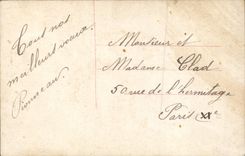 Tous nos
meilleurs voeux.
Pionneau.
Monsieur et
Madame Clad
50 rue de l'hermitage
Paris XXe